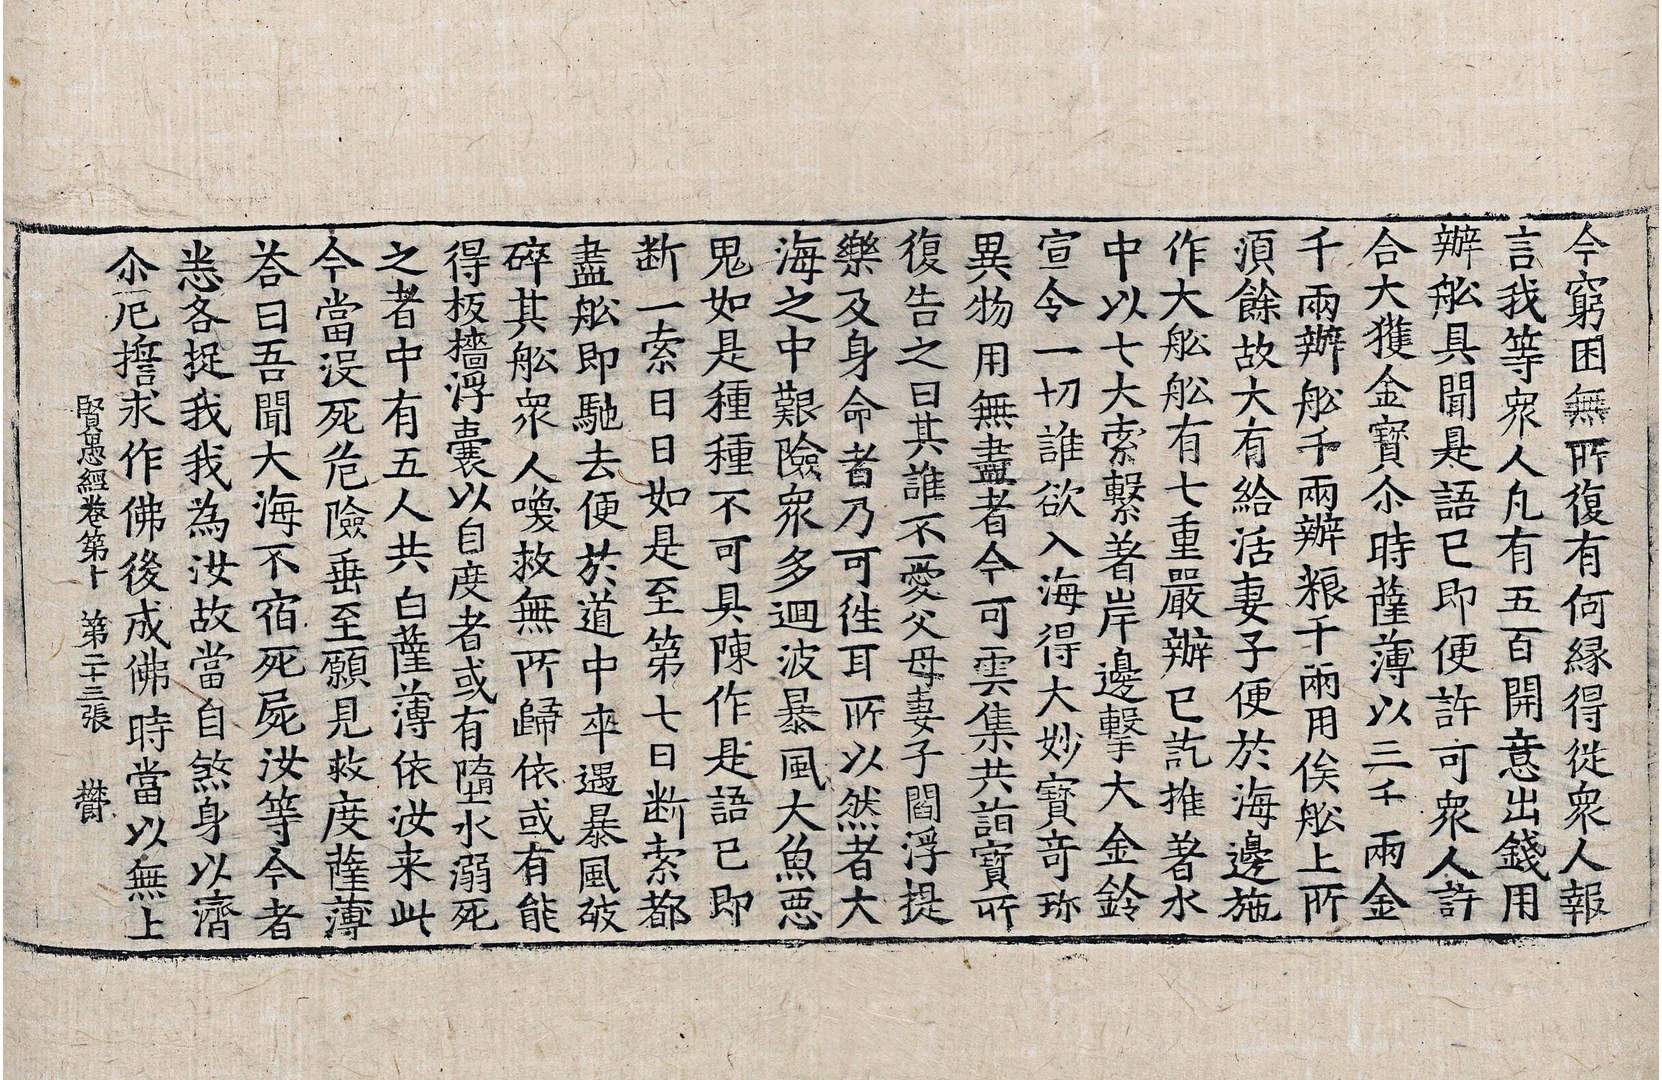 今窮困無所復有何縁得從衆人報
言我等衆人凡有五百開意出錢用
辦舩具聞是語已即便許可衆人許
合大獲金寶尒時薩薄以三千兩金
千兩辦舩千兩辦粮千兩用俟舩上所
須餘故大有給活妻子便於海邊施
作大舩舩有七重嚴辦已訖推著水
中以七大索繫著岸邊擊大金鈴
宣令一切誰欲入海得大妙寶竒珎
異物用無盡者今可雲集共詣寶所
復告之曰其誰不愛父母妻子閻浮提
樂及身命者乃可徃耳所以然者大
海之中艱險衆多迴波暴風大魚惡
鬼如是種種不可具陳作是語已即
断一索日日如是至第七日断索都
盡舩即馳去便於道中卒遇暴風破
碎其舩衆人喚救無所歸依或有能
得板檣浮囊以自度者或有墮水溺死
之者中有五人共白薩薄依汝来此
今當没死危險垂至願見救度薩薄
荅曰吾聞大海不宿死屍汝等今者
悉各捉我我為汝故當自煞身以濟
尒厄擔求作佛後成佛時當以無上
賢愚經卷第十 第二十三張 欝